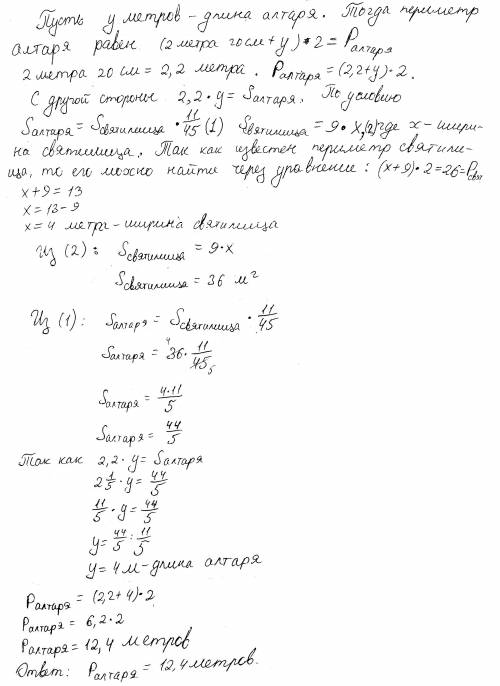 Пусть y метров - длина алтаря. Тогда периметр
алтаря равен (2 метра 20 см + y) • 2 = Pалтаря
2 метра 20 см = 2,2 метра. Pалтаря = (2,2+y)•2.
С другой стороны 2,2•y = Sалтаря. По условию
Sалтаря = Sсвятилища • 11/45 (1) Sсвятилища = 9•x,(2) где x - шири-
на святилища. Так как известен периметр святили-
ща, то его можно найти через уравнение: (x+9)•2=26=Pсвят
x+9=13
x=13-9
x=4 метра - ширина святилища
Из (2): Sсвятилища = 9•x
Sсвятилища = 36 м²
Из (1): Sалтаря = Sсвятилища • 11/45
Sалтаря = ⁴36 • 11/45₅
Sалтаря = 4•11/5
Sалтаря = 44/5
Так как 2,2•y = Sалтаря
2 1/5 •y = 44/5
11/5 •y = 44/5
y = 44/5 : 11/5
y = 4 м - длина алтаря
Pалтаря = (2,2+4)•2
Pалтаря = 6,2•2
Pалтаря = 12,4 метров
Ответ: Pалтаря = 12,4 метров.